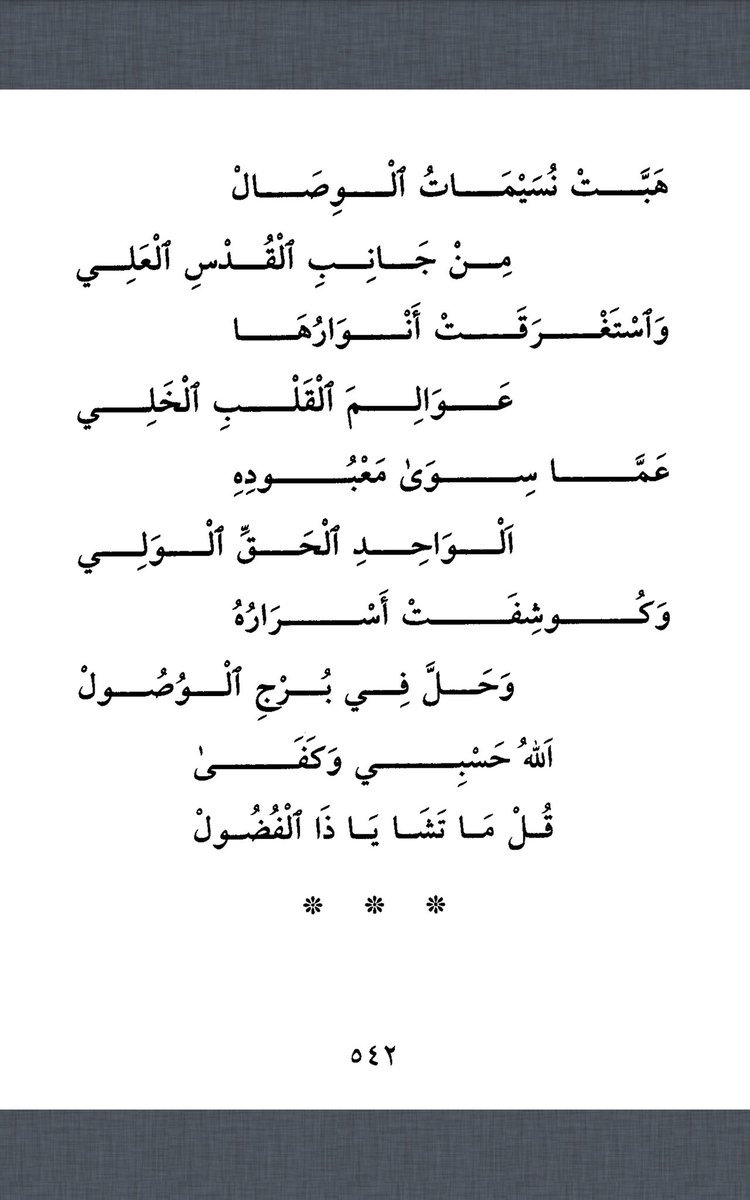 هَبَّتْ نُسَيْمَاتُ ٱلْوِصَالْ
مِنْ جَانِبِ ٱلْقُدْسِ ٱلْعَلِي
وَٱسْتَغْرَقَتْ أَنْوَارُهَا
عَوَالِمَ ٱلْقَلْبِ ٱلْخَلِي
عَمَّا سِوَىٰ مَعْبُودِهِ
اَلْوَاحِدِ ٱلْحَقِّ ٱلْوَلِي
وَكُوشِفَتْ أَسْرَارُهُ
وَحَلَّ فِي بُرْجِ ٱلْوُصُولْ
اَللهُ حَسْبِي وَكَفَىٰ
قُلْ مَا تَشَا يَا ذَا ٱلْفُضُولْ
❊ ❊ ❊
٥٤٢